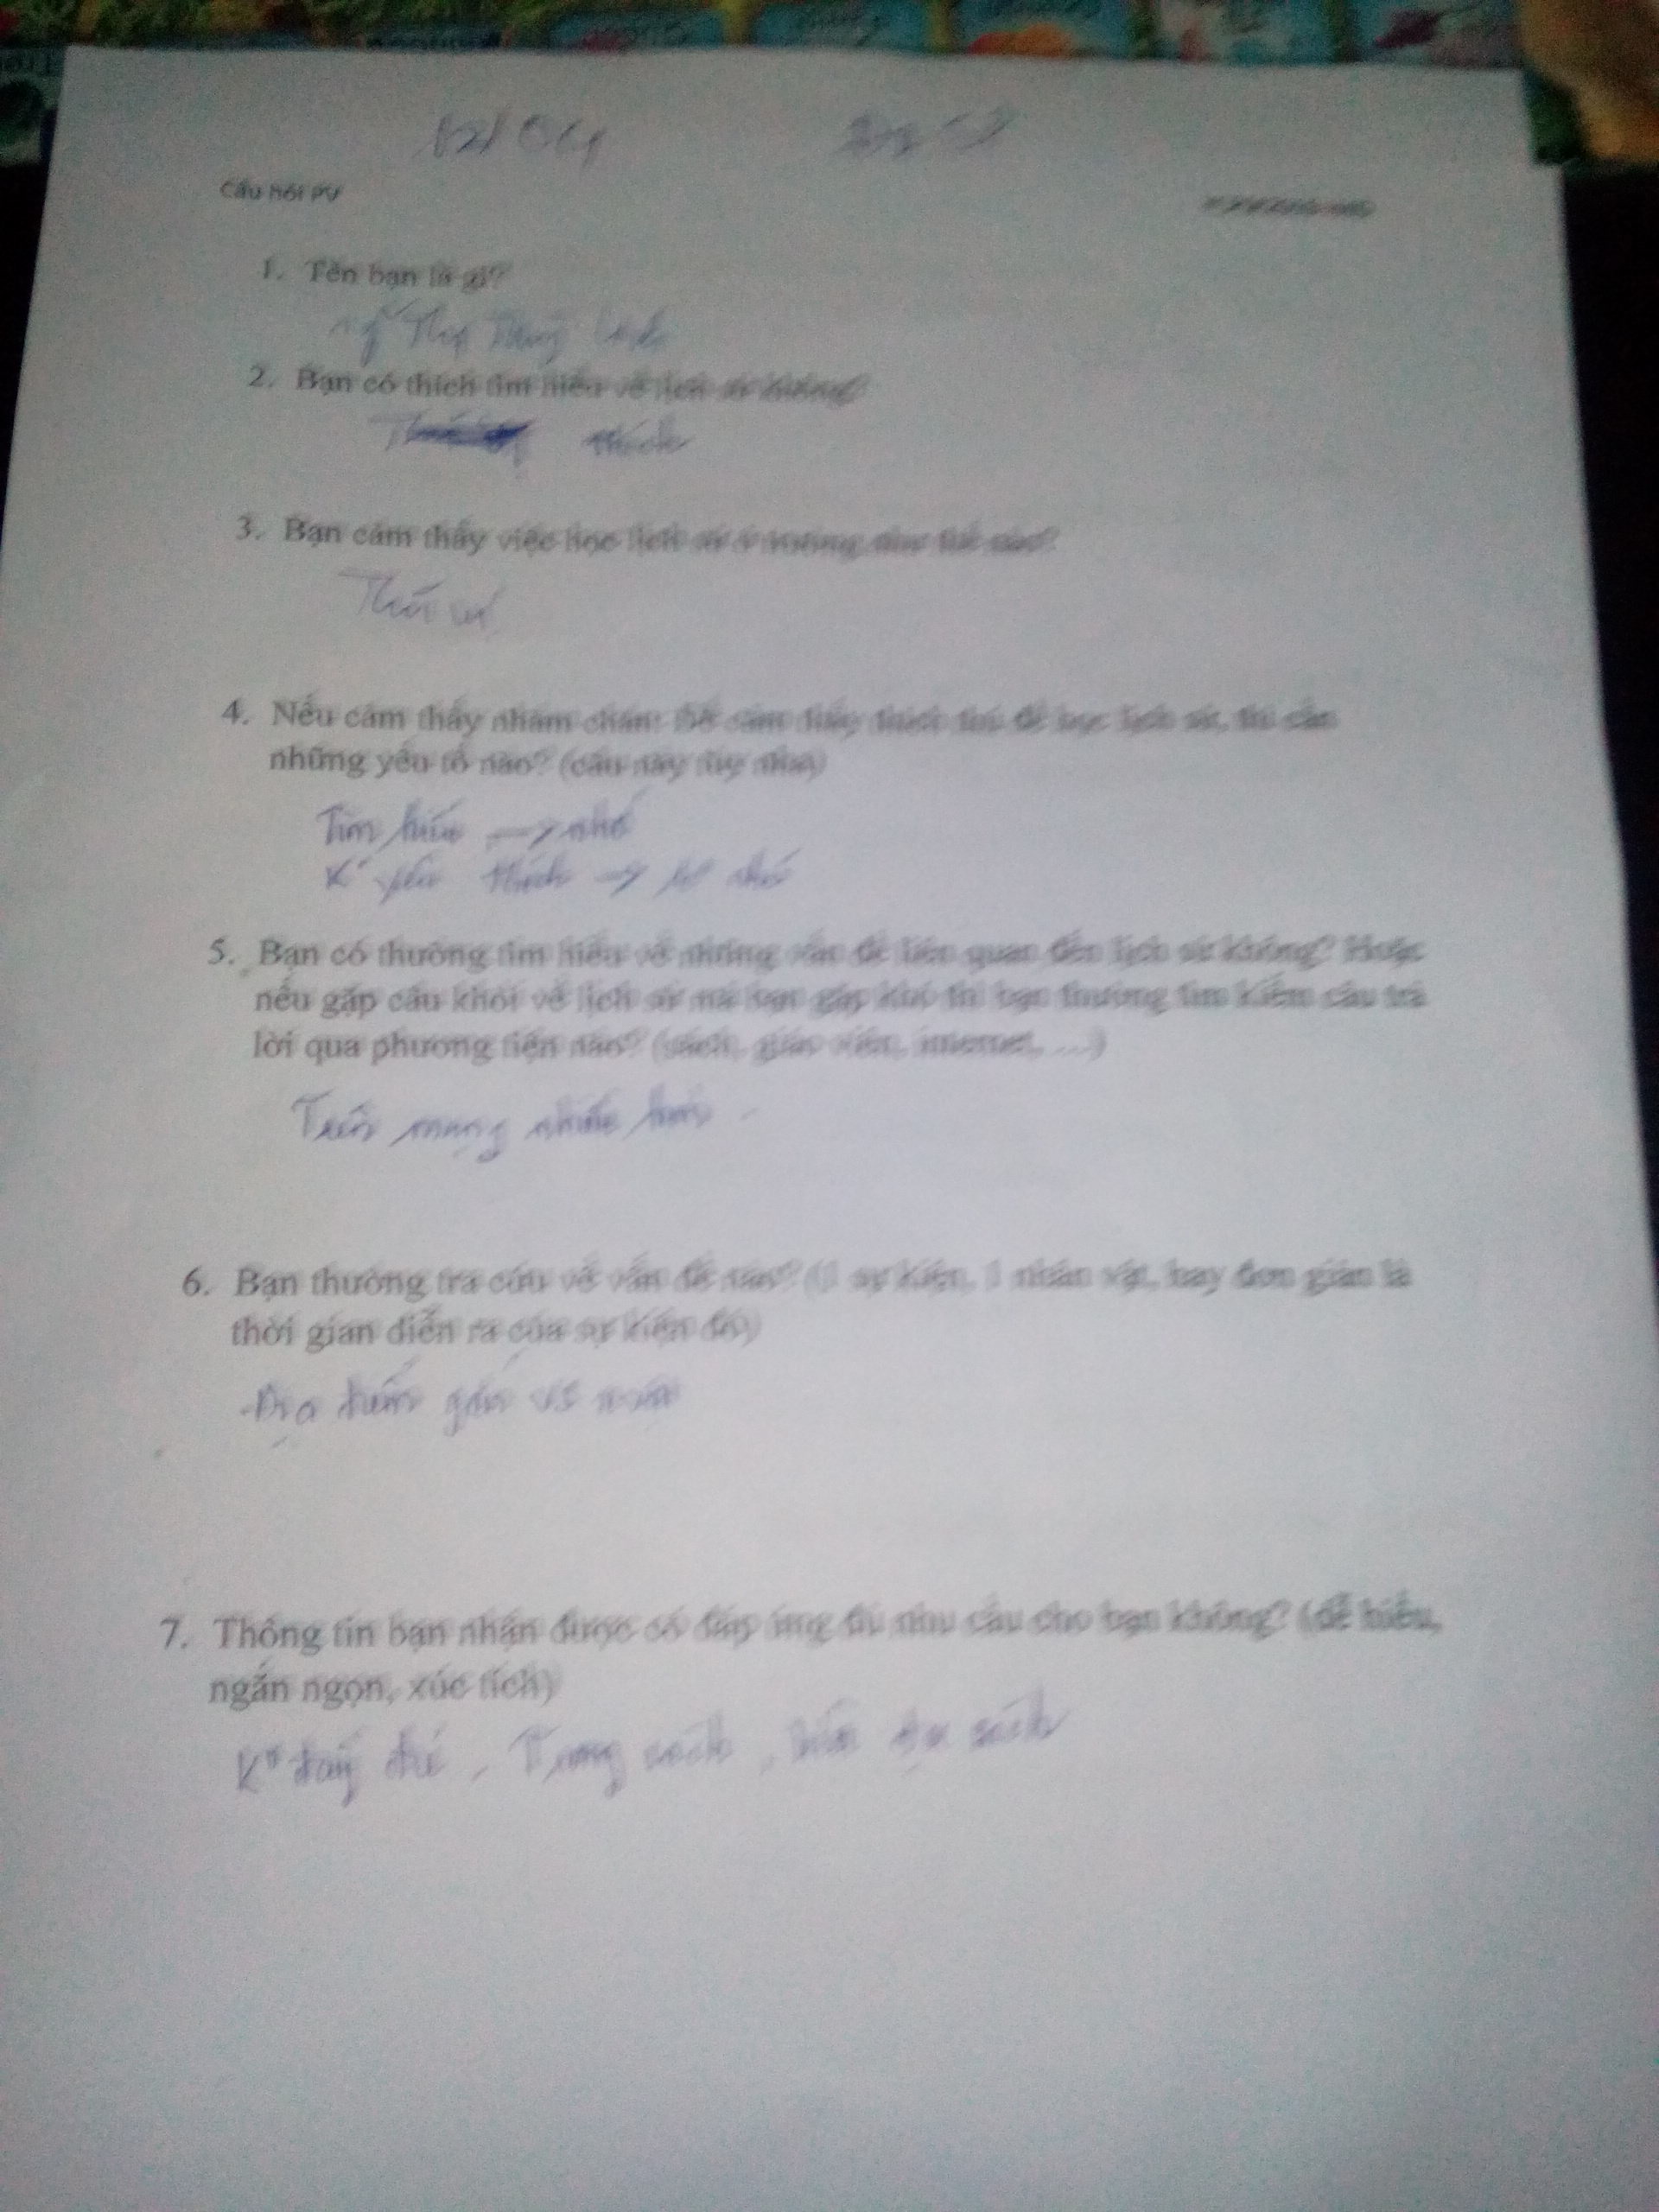 Câu hỏi PV
1. Tên bạn là gì?
2. Bạn có thích tìm hiểu về lịch sử không?
thích
3. Bạn cảm thấy việc học lịch sử ở trường như thế nào?
Thú vị
4. Nếu cảm thấy nhàm chán: Để cảm thấy thích thú để học lịch sử, thì cần
những yếu tố nào? (câu này tùy nha)
Tìm hiểu → nhớ
K yêu thích → nhớ
5. Bạn có thường tìm hiểu về những vấn đề liên quan đến lịch sử không? Hoặc
nếu gặp câu khỏi về lịch sử mà bạn gặp khó thì bạn thường tìm kiếm câu trả
lời qua phương tiện nào? (sách, giáo viên, internet, ...)
Trên mạng nhiều hơn
6. Bạn thường tra cứu về vấn đề nào? (1 sự kiện, 1 nhân vật, hay đơn giản là
thời gian diễn ra của sự kiện đó)
Địa điểm gắn với
7. Thông tin bạn nhận được có đáp ứng đủ nhu cầu cho bạn không? (dễ hiểu,
ngắn ngọn, xúc tích)
Trong sách, sách